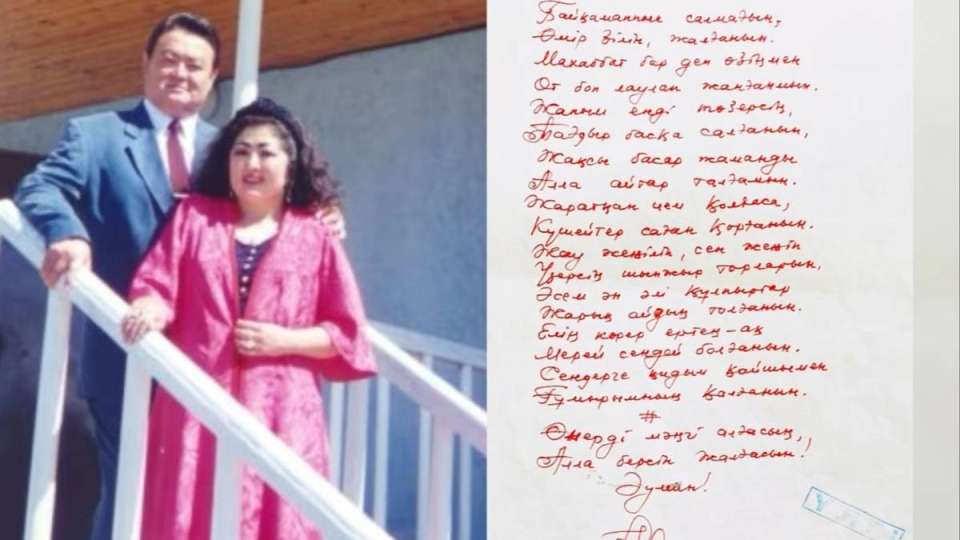 Байқамаппыс салмағын,
Өмір білін, жалғанын.
Махаббат бар деп өзіңмен
От боп лаулап жанғанмын.
Жаным енді төзерсің,
Тағдыр басқа салғанын,
Жақсы басар жаманды
Алла айтар таңдамын.
Жаратқан ием қолдаса,
Күшейтер саған қорғанын.
Жау жеңіліп, сен жеңіп
Үзерсің шынжыр торларын,
Әсем ән әлі құлпыртар
Жарық айдың толғанын.
Елің көрер ертең-ақ
Мерей сендей болғанын.
Сендерге қидым қайшымен
Ғұмырымның қалғанын.
#
Өнерді мәңгі алғасың,
Алла берсін жалғасын!
Әумин!